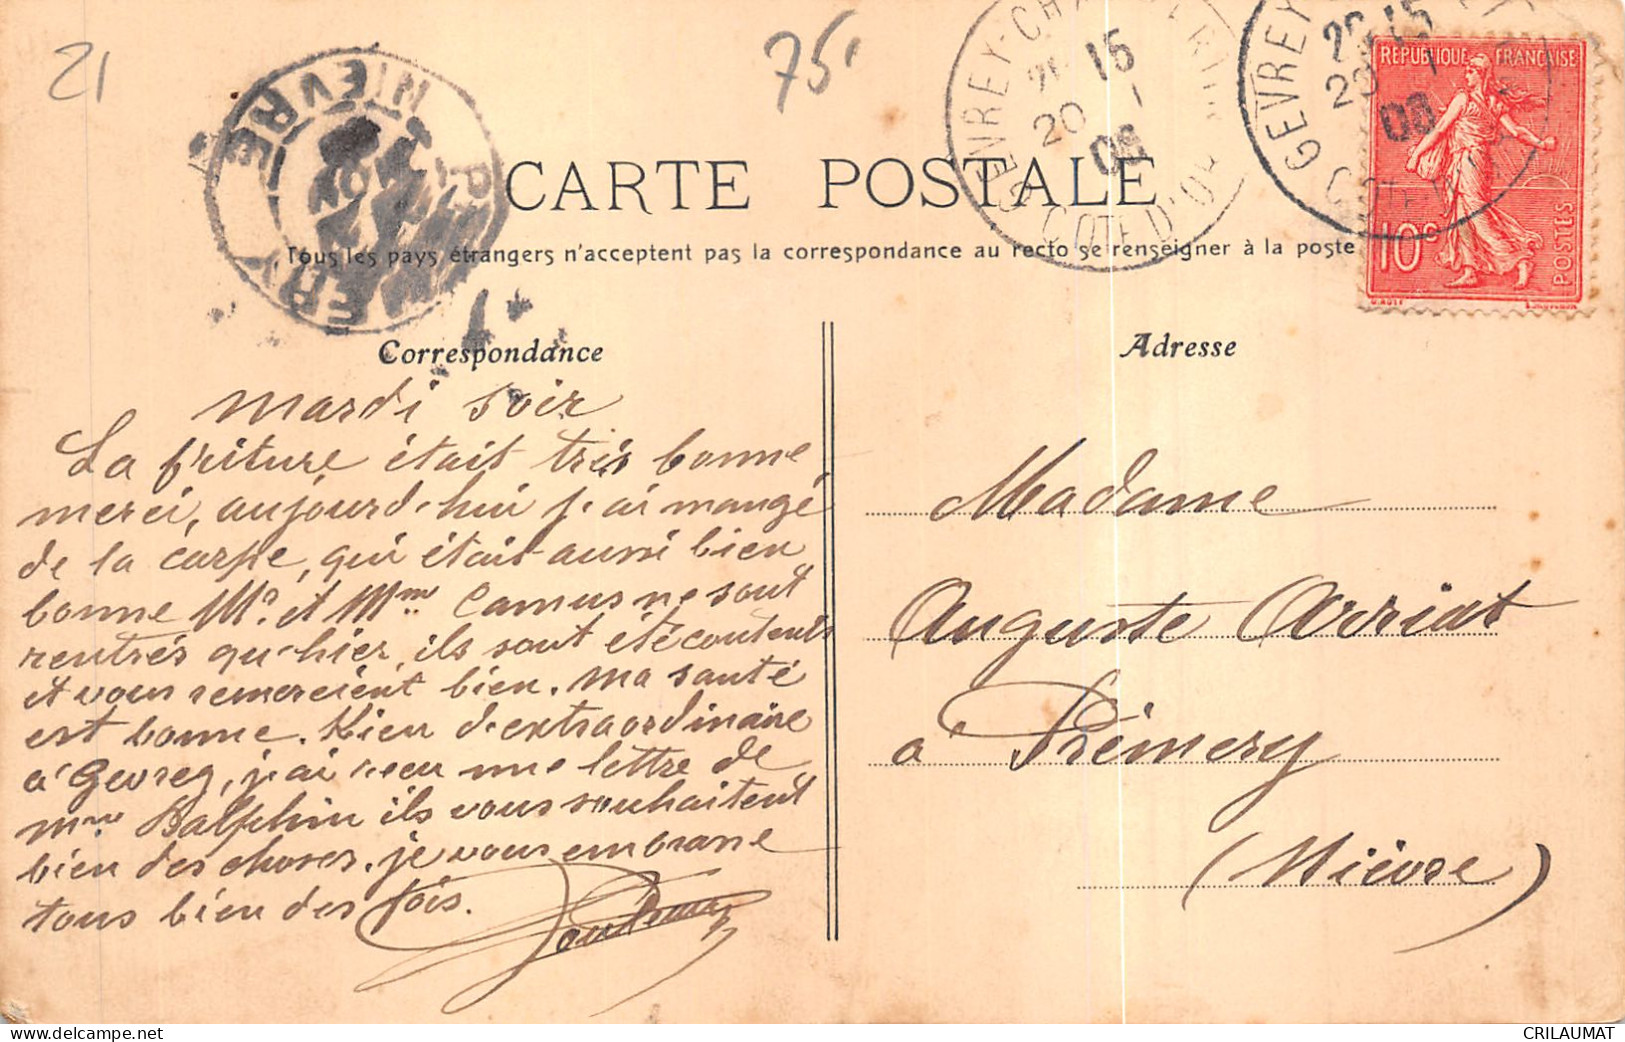 21
75
PRÉMERY
NIEVRE
GEVREY-CHAMBERTIN
20 15
20 - 1
08
COTE D'OR
GEVREY
20 15
20 1
08
COTE D'OR
REPUBLIQUE FRANÇAISE
10c
POSTES
CARTE POSTALE
Tous les pays étrangers n'acceptent pas la correspondance au recto se renseigner à la poste
Correspondance
Adresse
mardi soir
La friture était très bonne
merci, aujourd'hui j'ai mangé
de la carpe, qui était aussi bien
bonne Mr et Mme Camus ne sont
rentrés qu'hier, ils sont été contents
et vous remercient bien. Ma santé
est bonne. Rien d'extraordinaire
à Gevrey, j'ai reçu une lettre de
Mme Dalphin ils vous souhaitent
bien des choses. je vous embrasse
tous bien des fois.
Madame
Auguste Arriat
à Prémery
(Nièvre)
CRILAUMAT